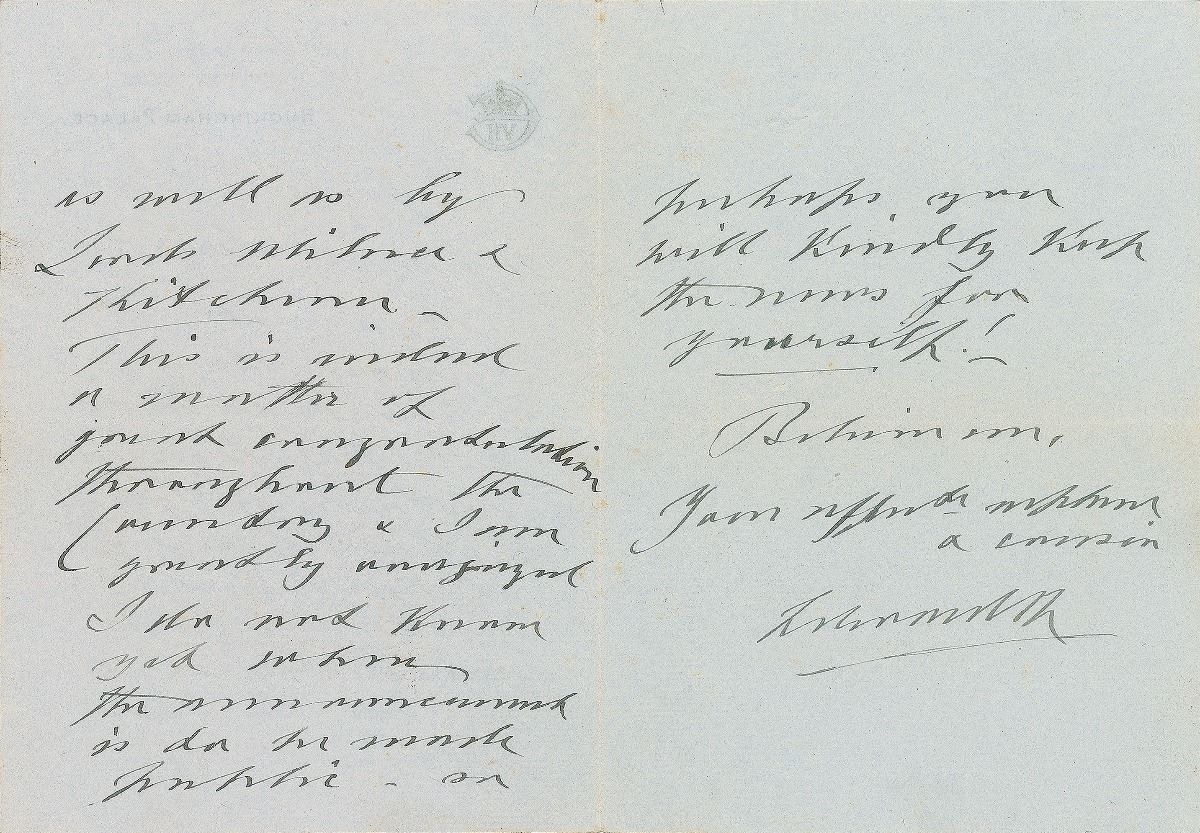 is well so by
Lords Milner &
Kitchener –
This is indeed
a matter of
great congratulation
throughout the
Country & I am
greatly
I do not know
yet when
the announcement
is to be made
public – so
perhaps you
will kindly keep
the news for
yourself! –
Believe me,
Your affte nephew
& cousin